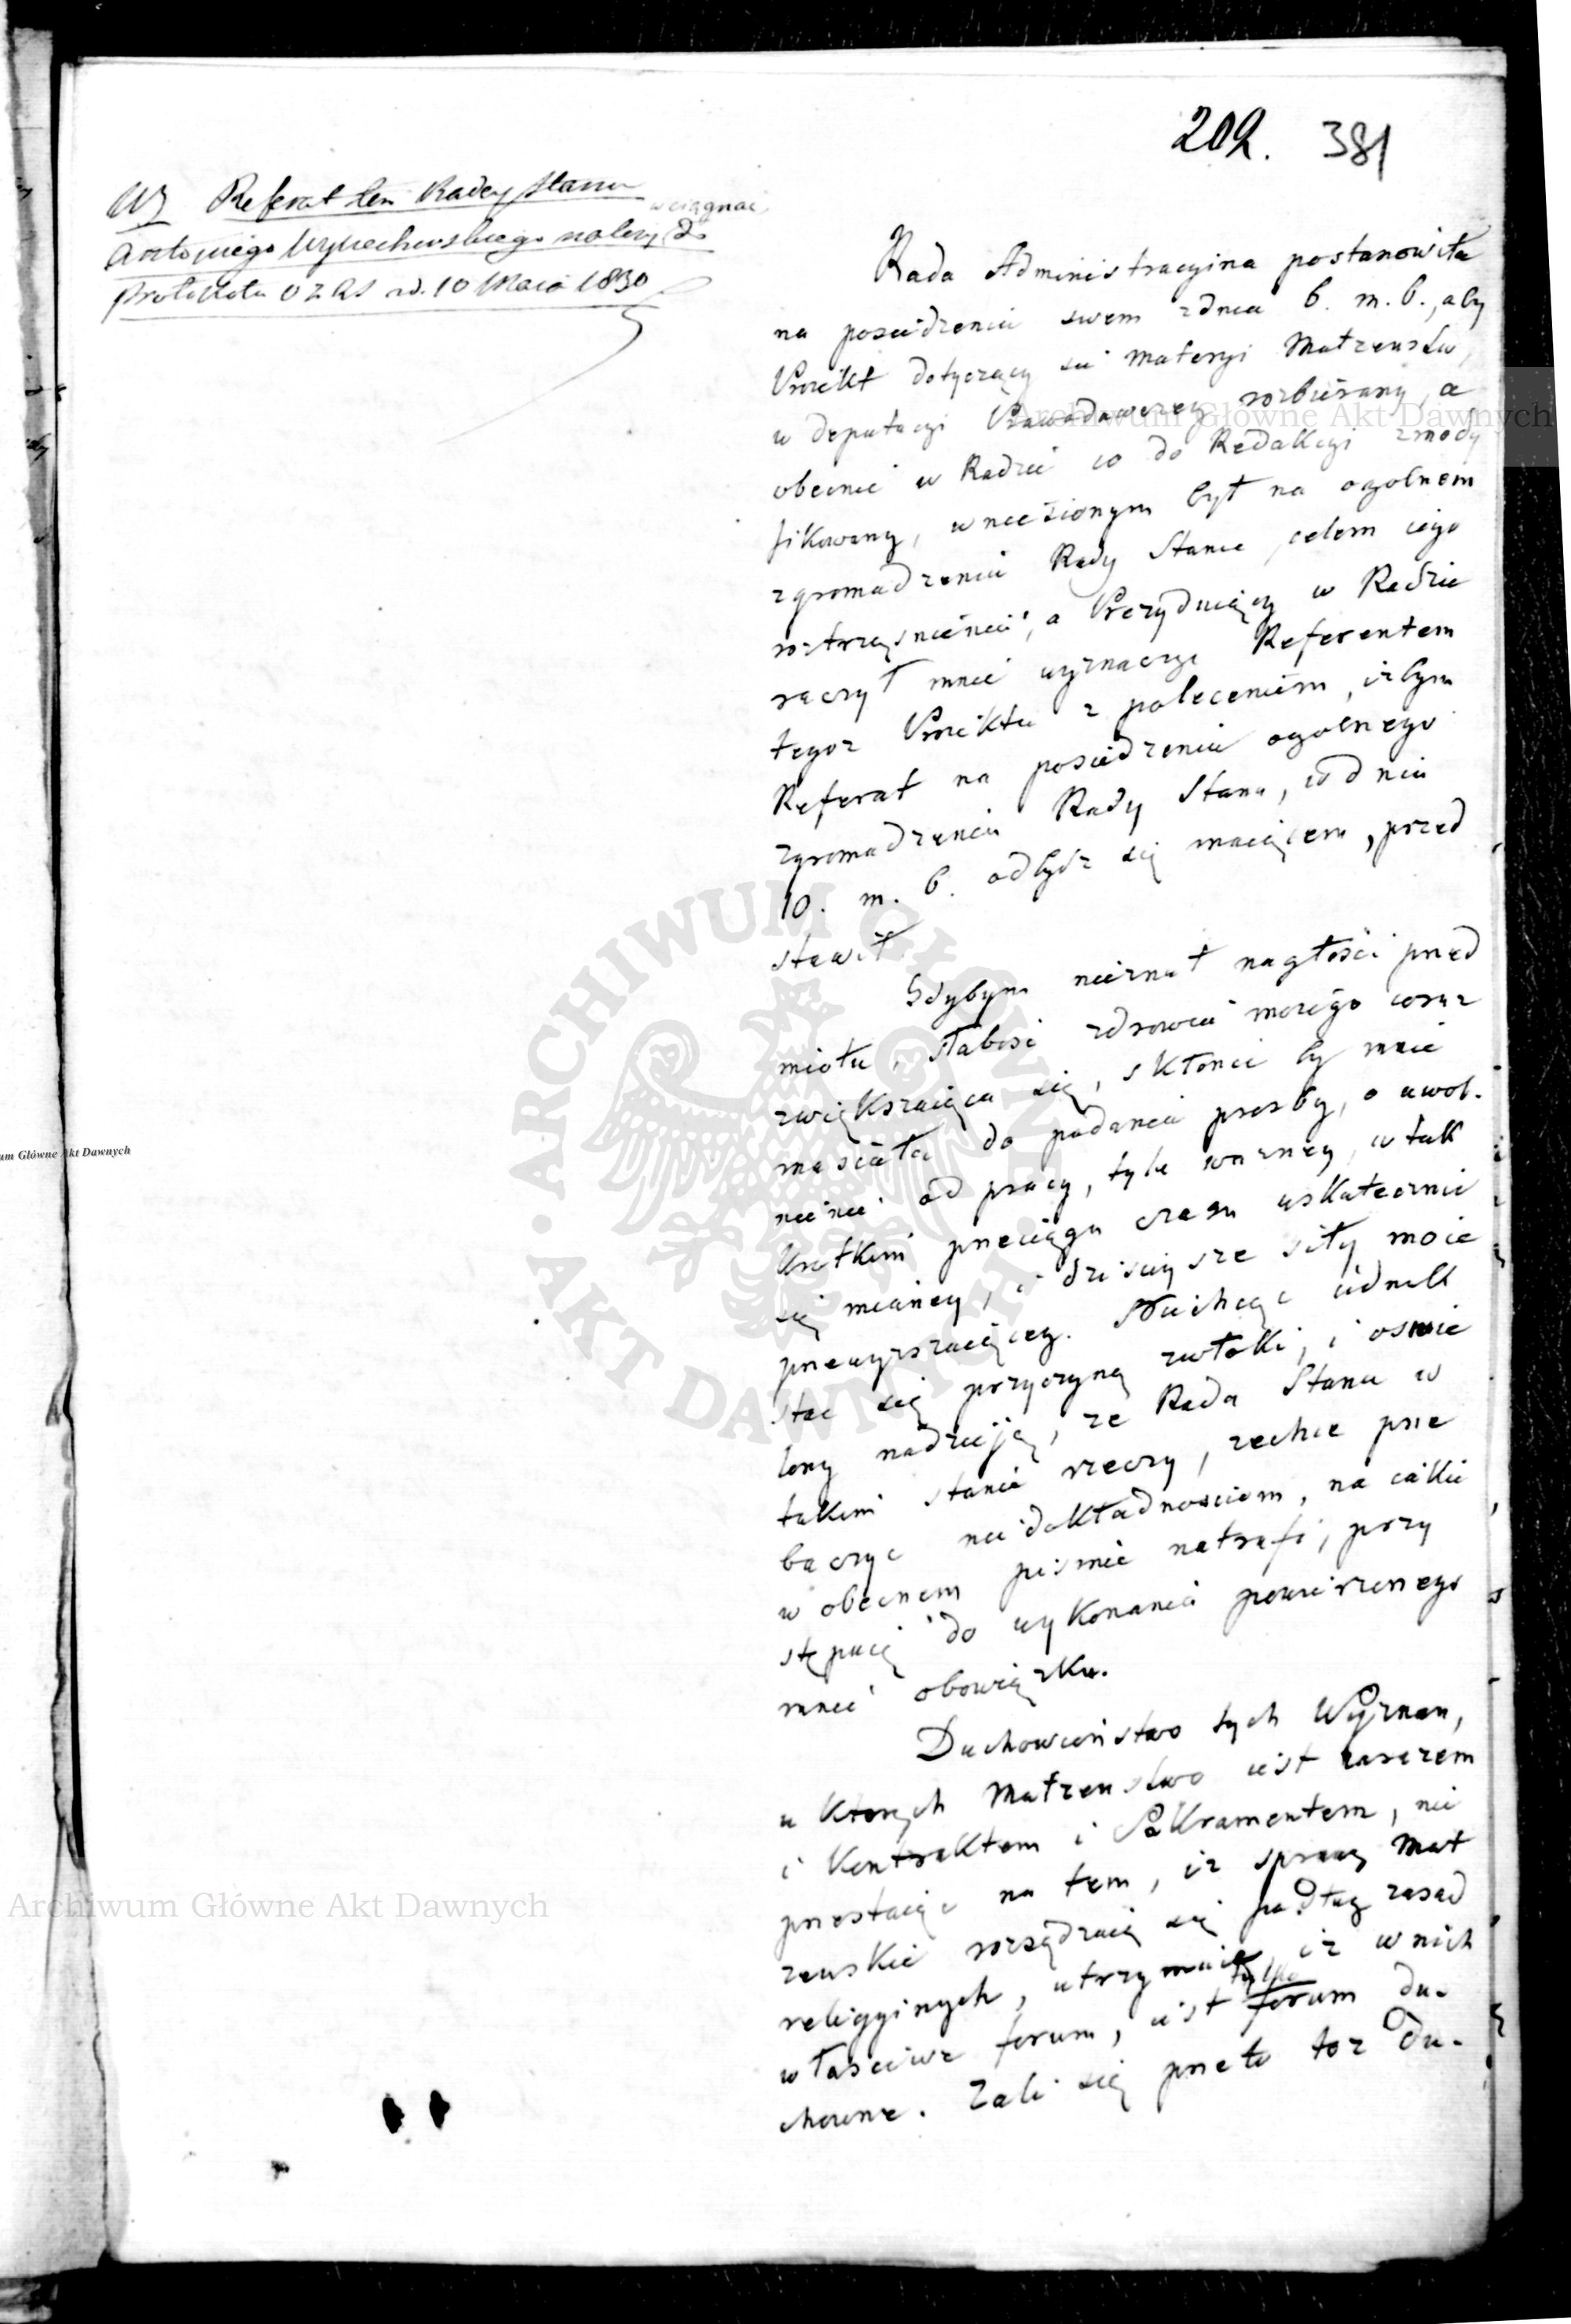 202. 381
Referat ten Radcy Stanu
wciągnąć
Antoniego Wyczechowskiego należy do
Protokołu OZRS d. 10 Maia 1830
Rada Administracyina postanowiła
na posiedzeniu swem zdnia 6. m. b., aby
Proiekt dotyczący się materyi Małżeństw,
w deputacyi Prawodawczey rozbierany, a
obecnie w Radzie co do Redakcyi zmody
fikowany, wniesionym był na ogolnem
zgromadzeniu Rady Stanu, celem iego
roztrząśnienia; a Prezyduiący w Radzie
raczył mnie wyznaczyć Referentem
tegoż Proiektu z poleceniem, iżbym
Referat na posiedzeniu ogolnego
zgromadzenia Rady Stanu, w dniu
10. m. b. odbydź się maiącem, przed
stawił.
Gdybym nieznał nagłości przed
miotu, słabość zdrowia moiego coraz
zwiększaiąca się, skłonić by mnie
musiała do podania prosby, o uwol-
nienie od pracy, tyle ważney, w tak
krotkim przeciągu czasu uskutecznić
się mianey, i dzisieysze siły moie
przewyższaiącey. Niechcąc iednak
stać się przyczyną zwłoki, i osmie
lony nadzieją, że Rada Stanu w
takim stanie rzeczy, zechce prze
baczyć niedokładnosciom, na iakie
w obecnem pismie natrafi, przy
stępuię do wykonania powierzonego
mnie obowiązku.
Duchowieństwo tych Wyznań,
u ktorych Małżenstwo iest razem
i Kontraktem i Sakramentem, nie
przestaiąc na tem, iż sprawy Mał
żeńskie rozsądzaią się podług zasad
religyinych, utrzymuie, iż w nich
tylko
właściwe forum, iest forum du-
chowne. Żali się przeto toż Du-
Archiwum Główne Akt Dawnych
um Główne Akt Dawnych
Archiwum Główne Akt Dawnych
ARCHIWUM GŁÓWNE · AKT DAWNYCH ·